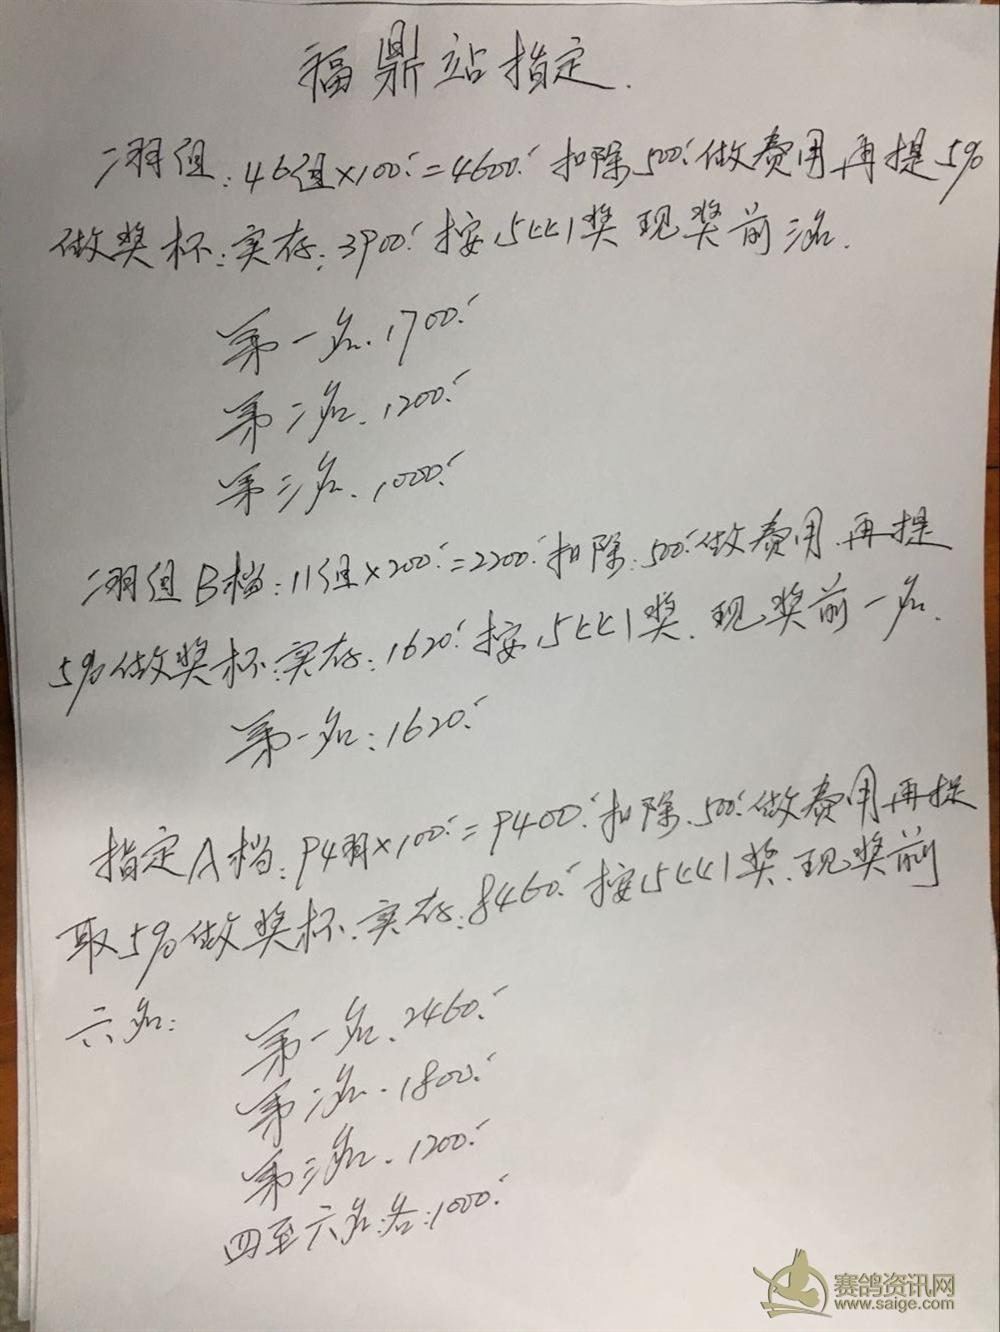 福鼎站指定.
二羽组:46组×100=4600 扣除500做费用.再提5%
做奖杯:实存:3900 按15比1奖 现奖前三名.
第一名.1700
第二名.1200
第三名.1000
二羽组B档:11组×200=2200 扣除:500做费用.再提
5%做奖杯:实存:1620 按15比1奖.现奖前一名.
第一名:1620
指定A档:94羽×100=9400 扣除.500做费用再提
取5%做奖杯.实存:8460 按15比1奖.现奖前
六名:
第一名.2460
第二名.1800
第三名.1200
四至六名:各:1000
赛鸽资讯网
www.saige.com